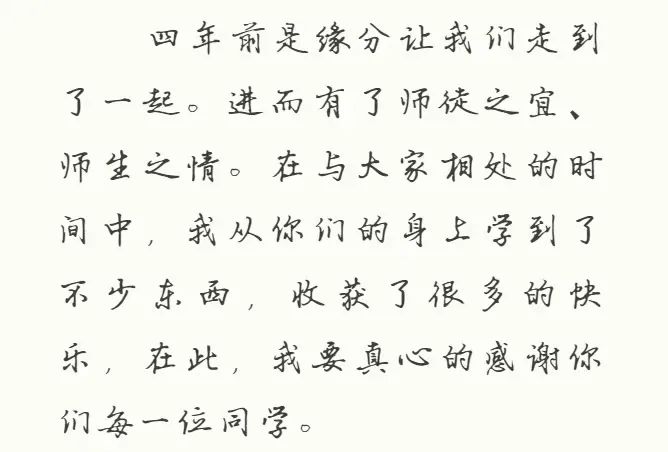 四年前是缘分让我们走到
了一起。进而有了师徒之宜、
师生之情。在与大家相处的时
间中，我从你们的身上学到了
不少东西，收获了很多的快
乐，在此，我要真心的感谢你
们每一位同学。